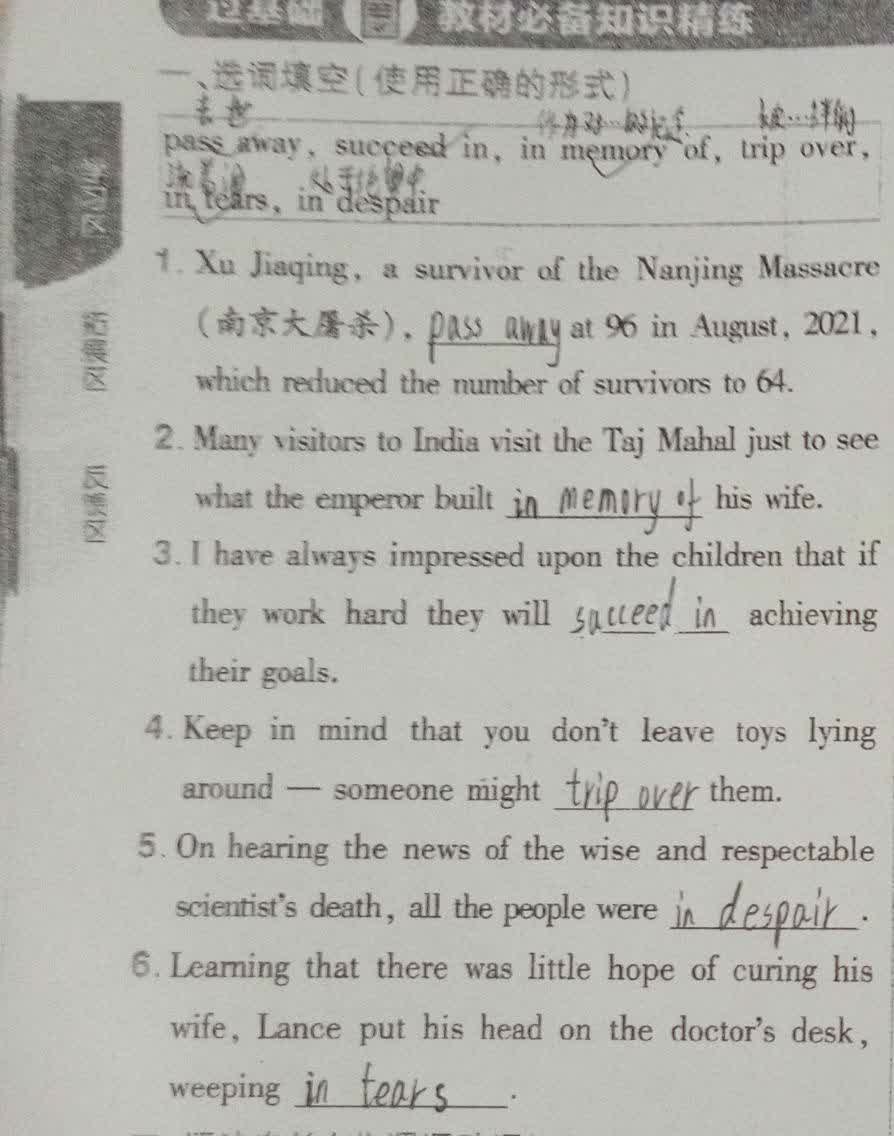 过基础 教材必备知识精练
一、选词填空(使用正确的形式)
去世
pass away, succeed in, in memory of, trip over,
in tears, in despair
1. Xu Jiaqing, a survivor of the Nanjing Massacre
(南京大屠杀), pass away at 96 in August, 2021,
which reduced the number of survivors to 64.
2. Many visitors to India visit the Taj Mahal just to see
what the emperor built in memory of his wife.
3. I have always impressed upon the children that if
they work hard they will succeed in achieving
their goals.
4. Keep in mind that you don't leave toys lying
around — someone might trip over them.
5. On hearing the news of the wise and respectable
scientist's death, all the people were in despair.
6. Learning that there was little hope of curing his
wife, Lance put his head on the doctor's desk,
weeping in tears.
拓展区
反馈区